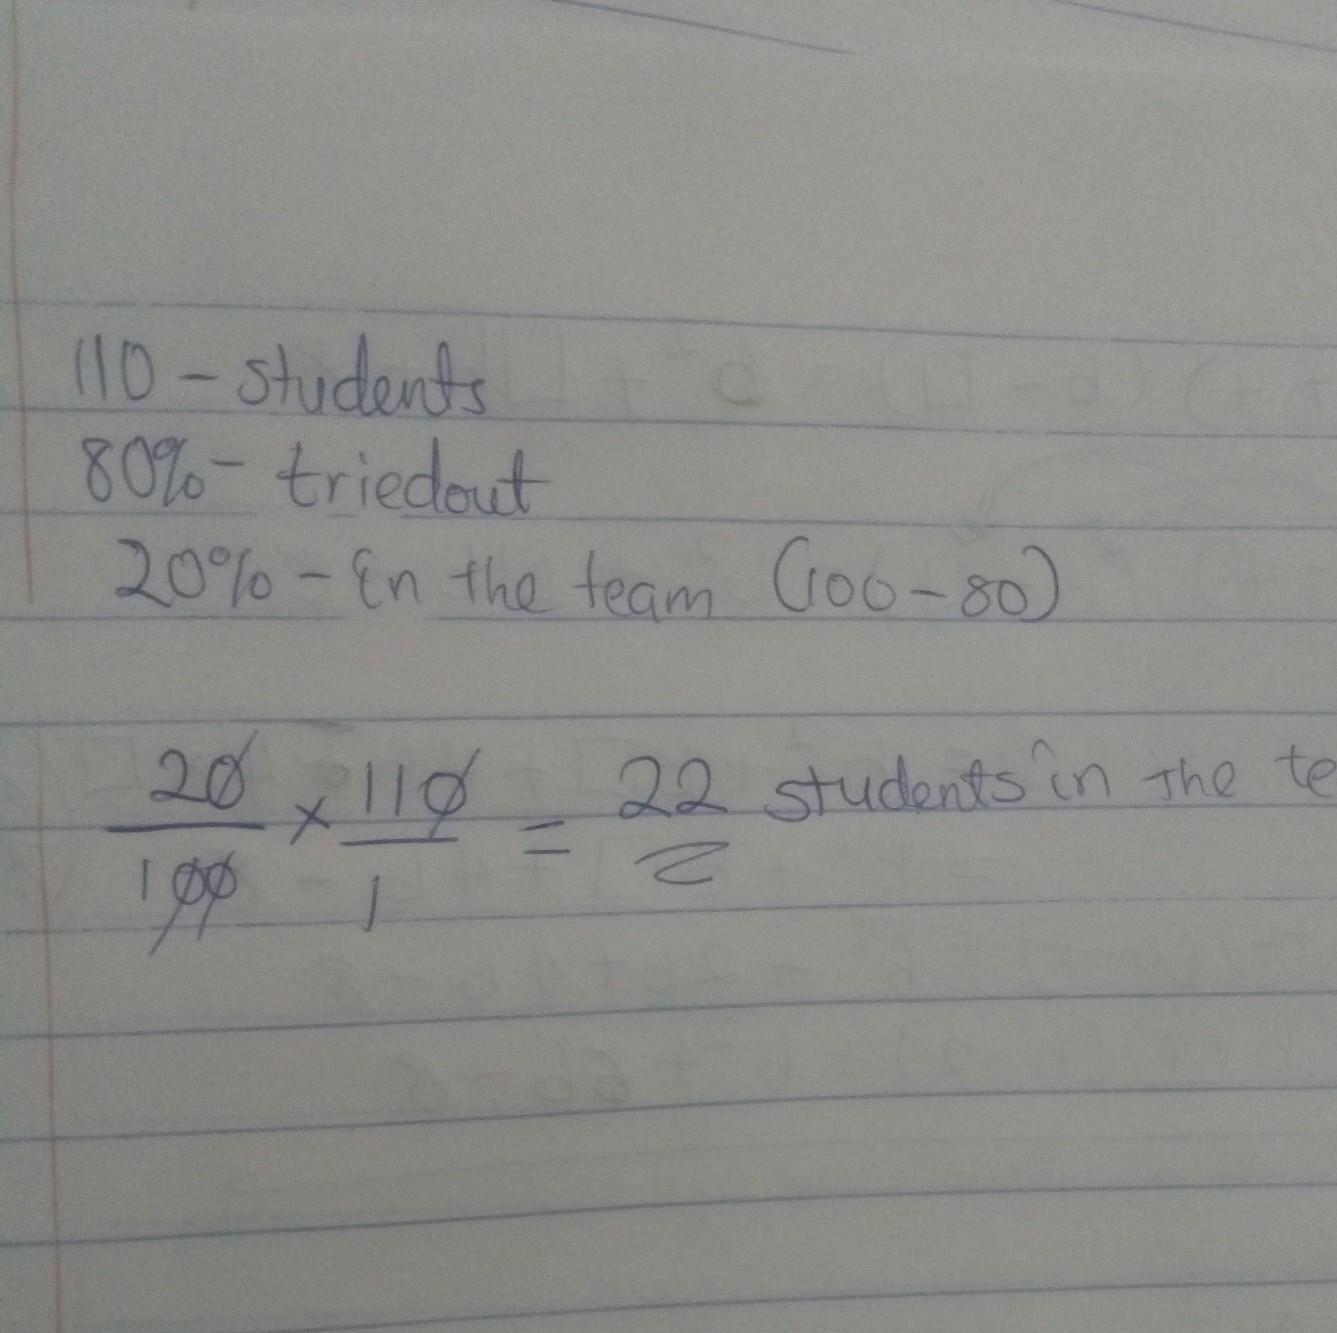 110 - students
80% - triedout
20% - in the team (100-80)
20/100 × 110/1 = 22 students in the te